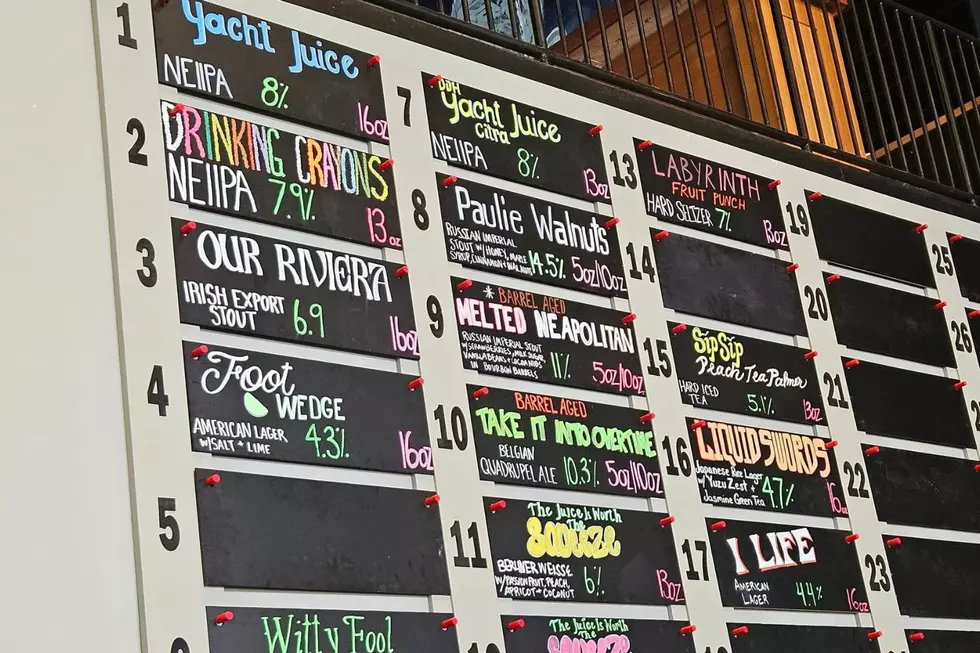 1
Yacht Juice
NEIIPA 8% 16oz
2
DRINKING CRAYONS
NEIIPA 7.9% 13oz
3
OUR RIVIERA
IRISH EXPORT
STOUT 6.9 16oz
4
Foot
WEDGE
AMERICAN LAGER
W/SALT + LIME 4.3% 16oz
5
Witty Fool
7
DDH
Yacht Juice
Citra
NEIIPA 8% 13oz
8
Paulie Walnuts
RUSSIAN IMPERIAL
STOUT W/ HONEY, MAPLE
SYRUP, CINNAMON + WALNUTS 14.5% 5oz/10oz
9
* BARREL AGED
MELTED NEAPOLITAN
RUSSIAN IMPERIAL STOUT
W/STRAWBERRIES, MILK SUGAR,
VANILLA BEANS + COCOA NIBS
IN BOURBON BARRELS 11% 5oz/10oz
10
BARREL AGED
TAKE IT INTO OVERTIME
BELGIAN
QUADRUPEL ALE 10.3% 5oz/10oz
11
The Juice Is Worth
The
SQUEEZE
BERLINER WEISSE
W/PASSIONFRUIT, PEACH,
APRICOT + COCONUT 6% 13oz
The Juice Is Worth
The
13
LABYRINTH
FRUIT PUNCH
HARD SELTZER 7% 13oz
14
15
Sip Sip
Peach Tea Palmer
HARD ICED
TEA 5.1% 13oz
16
LIQUID SWORDS
Japanese Rice Lager
w/ Yuzu Zest +
Jasmine Green Tea 4.7% 16oz
17
I LIFE
AMERICAN
LAGER 4.4% 16oz
19
20
21
22
23
25
26